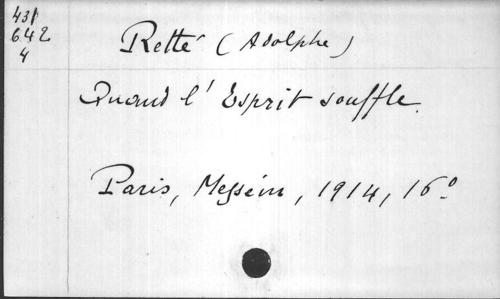 431
642
4
Retté (Adolphe)
Quand l'Esprit souffle.
Paris, Messein, 1914, 16°